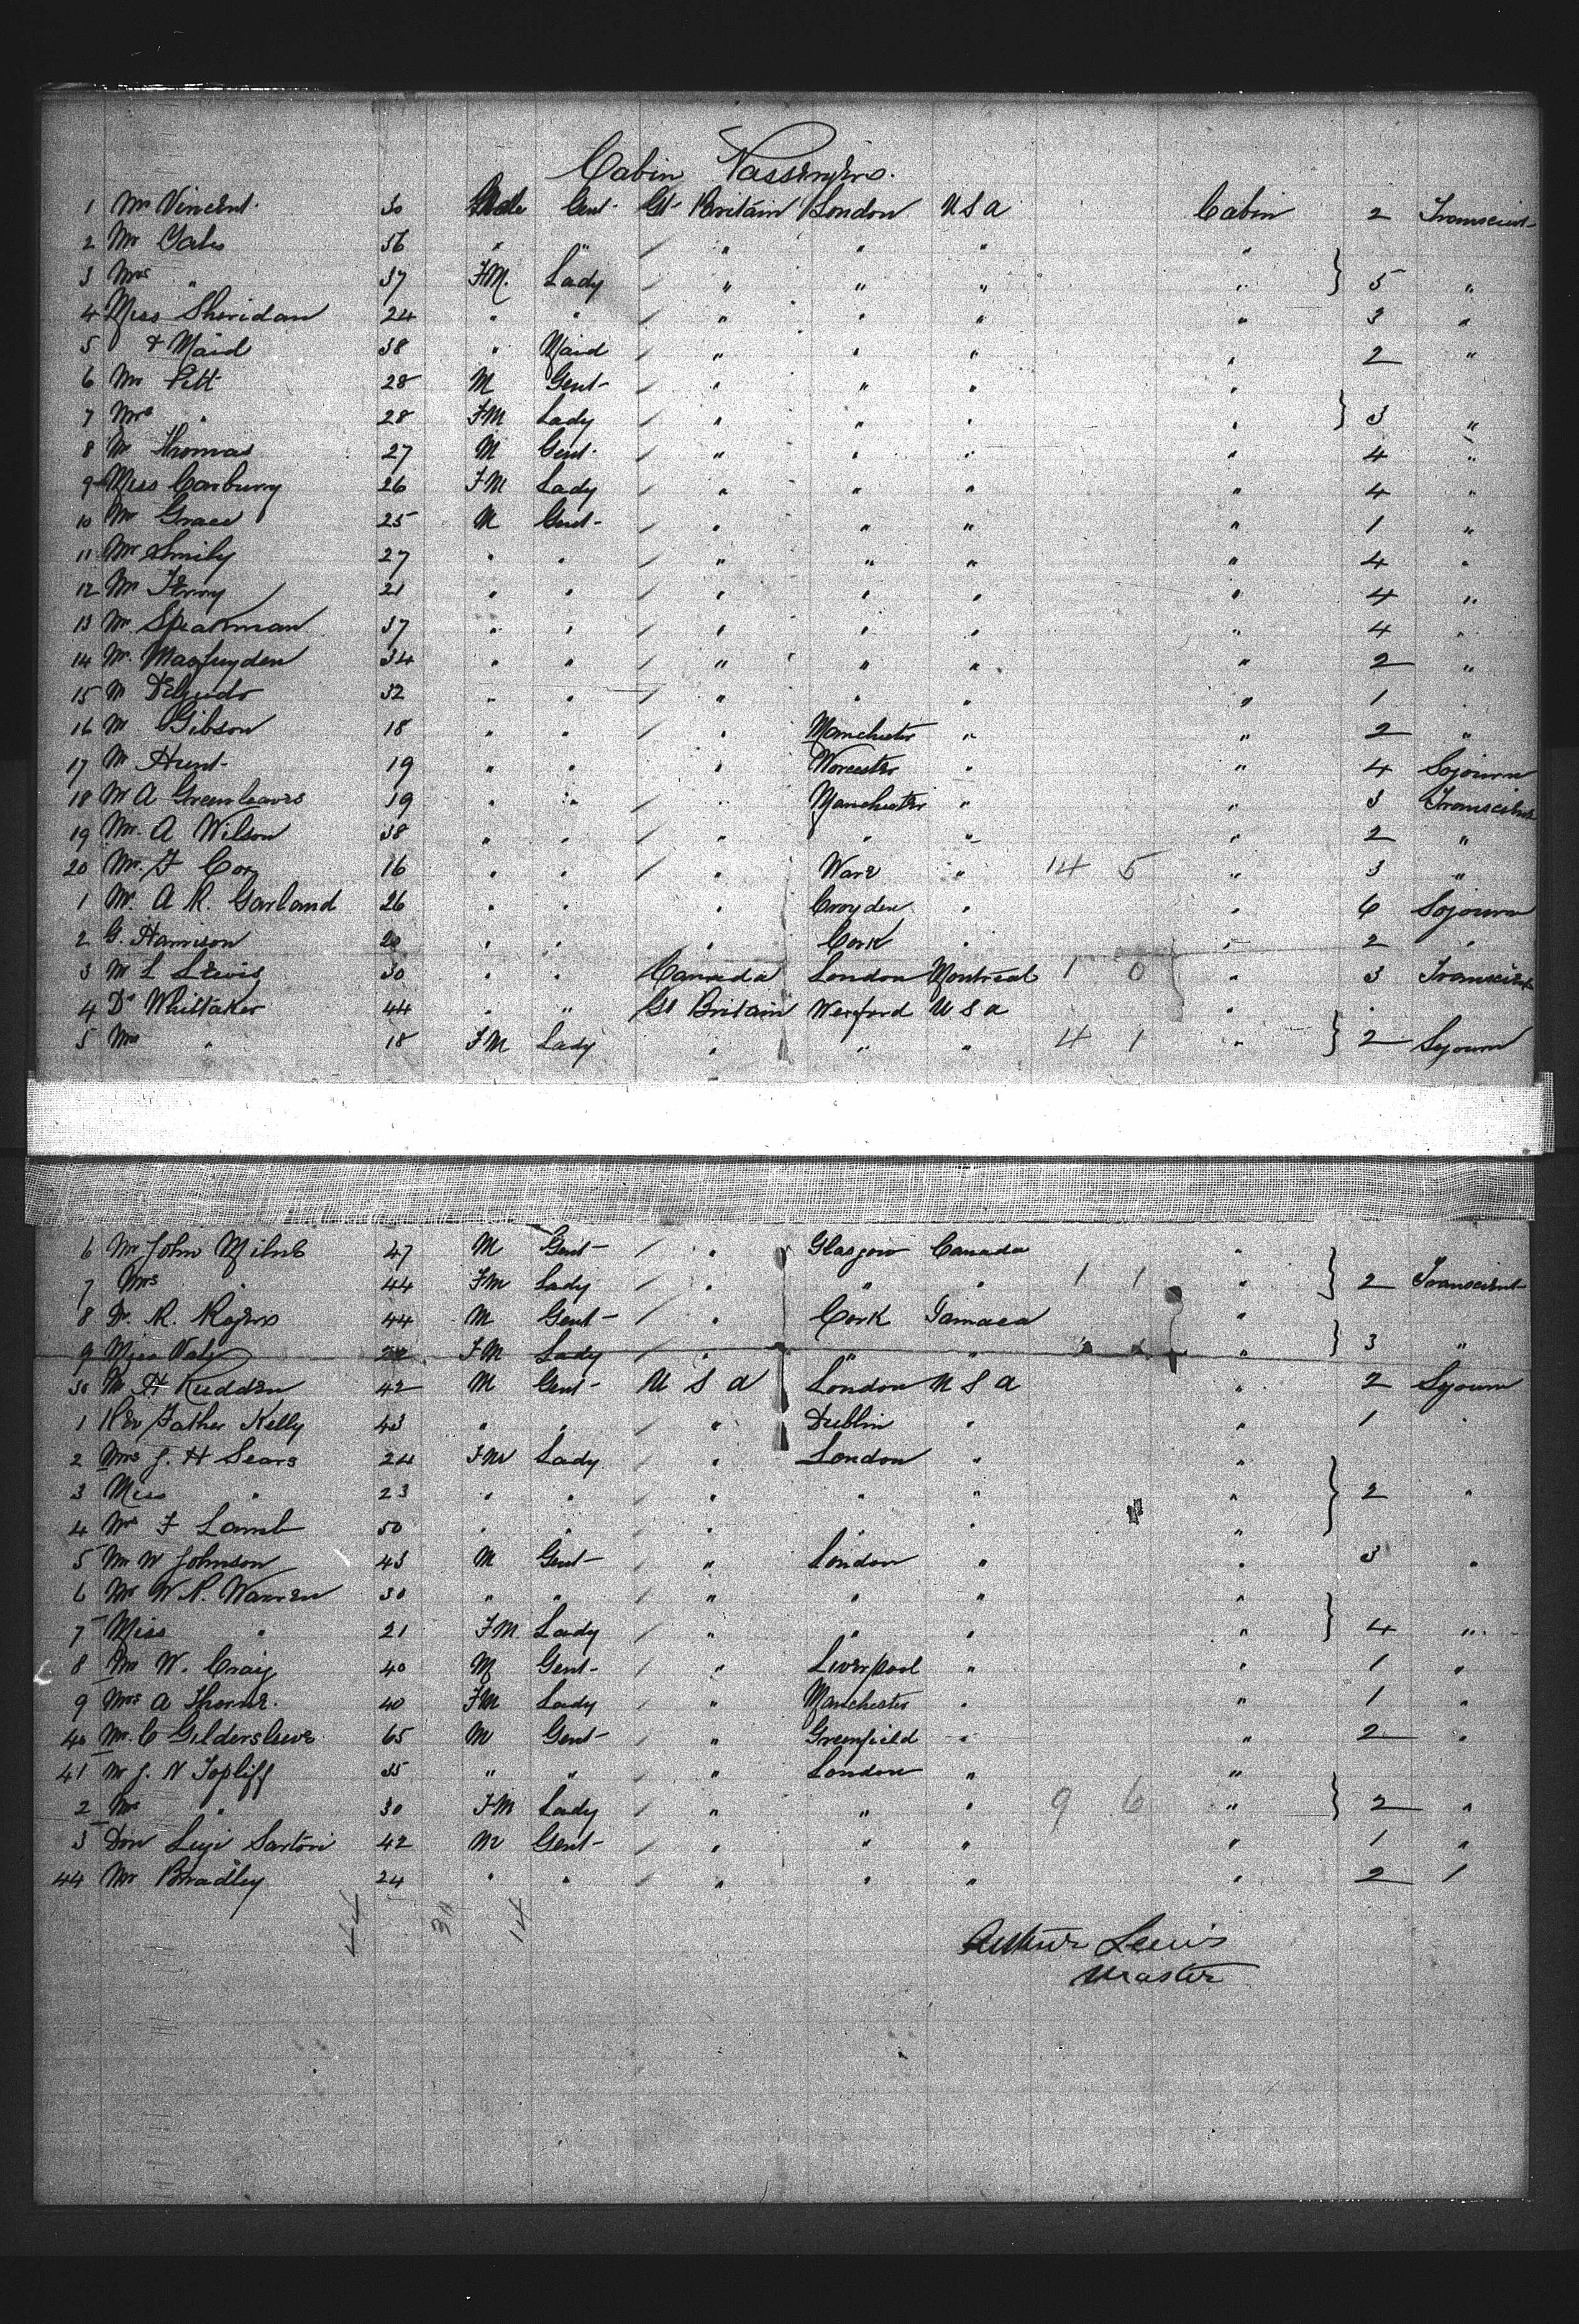 Cabin Passengers.
1 Mr Vincent 30 Male Gent Gt Britain London U S A Cabin 2 Transcient
2 Mr 36 " " " " " "
3 Mrs " 37 FM. Lady " " " " } 5 "
4 Miss Sheridan 24 " " " " " " 3 "
5 & Maid 38 " Maid " " " " 2 "
6 Mr Pitt 28 M Gent " " " "
7 Mrs " 28 FM Lady " " " " } 3 "
8 Mr Thomas 27 M Gent " " " " 4 "
9 Miss Carburry 26 FM Lady " " " " 4 "
10 Mr Grace 25 M Gent " " " " 1 "
11 Mr Smily 27 " " " " " " 4 "
12 Mr 21 " " " " " " 4 "
13 Mr Speakman 37 " " " " " " 4 "
14 Mr. 34 " " " " " " 2 "
15 M 32 " " " " " " 1 "
16 M Gibson 18 " " " Manchester " " 2 "
17 M Hunt 19 " " " Worcester " " 4 Sojourn
18 M A Greenleaves 19 " " " Manchester " " 3 Transcient
19 Mr. A Wilson 38 " " " " " " 2 "
20 Mr. F Cox 16 " " " Ware " 14 5 " 3 "
1 Mr. A R. Garland 26 " " " Croyden " " 6 Sojourn
2 G. Harrison 20 " " " Cork " " 2 "
3 M L Lewis 30 " " Canada London Montreal 1 0 " 3 Transcient
4 Dr Whittaker 44 " " Gt Britain Wexford U S A "
5 Mrs " 18 FM Lady " " " 4 1 " } 2 Sojourn
6 Mr John Milne 47 M Gent " Glasgow Canada "
7 Mrs " 44 FM Lady " " " 1 1 " } 2 Transcient
8 Dr. R. Rogers 44 M Gent " Cork Jamaca "
9 Miss FM Lady " " " " } 3 "
30 M H Rudden 42 M Gent U S A London U S A " 2 Sojourn
1 Rev Father Kelly 43 " " " Dublin " " 1 "
2 Mrs J. H Sears 24 FM Lady " London " "
3 Miss " 23 " " " " " " } 2 "
4 Mrs F Lamb 50 " " " " " "
5 Mr W Johnson 43 M Gent " London " " 3 "
6 Mr W. R. Warren 30 " " " " " "
7 Miss " 21 FM Lady " " " " } 4 "
8 Mr W. Craig 40 M Gent " Liverpool " " 1 "
9 Mrs A Thorne. 40 FM Lady " Manchester " " 1 "
40 Mr. C Gildersleeve 65 M Gent " Greenfield " " 2 "
41 Mr J. N Topliff 35 " " " London " "
2 Mrs " 30 FM Lady " " " 9 6 " } 2 "
3 Don Luji Sartori 42 M Gent " " " " 1 "
44 Mr Bradley 24 " " " " " " 2 1
44 14
Arthur Lewis
Master